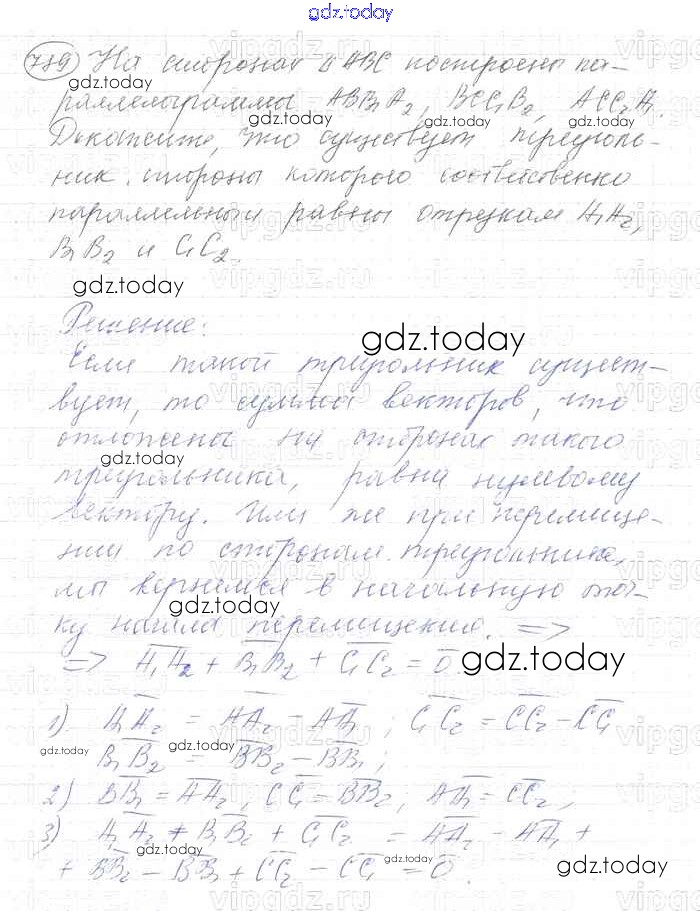 gdz.today
789) На сторонах Δ ABC построены па-
раллелограммы ABB₁A₂, BCC₁B₂, ACC₂A₁.
Докажите, что существует треуголь-
ник стороны которого соответственно
параллельны и равны отрезкам A₁A₂,
B₁B₂ и C₁C₂.
gdz.today
Решение:
gdz.today
Если такой треугольник сущест-
вует, то сумма векторов, что
отложены на сторонах такого
треугольника, равна нулевому
вектору. Или же при перемеще-
нии по сторонам треугольника,
мы вернемся в начальную точ-
ку начала перемещения. =>
=> A₁A₂ + B₁B₂ + C₁C₂ = 0.
1) A₁A₂ = AA₂ – AA₁ ; C₁C₂ = CC₂ – CC₁
B₁B₂ = BB₂ – BB₁ ;
2) BB₁ = AA₂ , CC₁ = BB₂ ; AA₁ = CC₂ ;
3) A₁A₂ + B₁B₂ + C₁C₂ = AA₂ – AA₁ +
+ BB₂ – BB₁ + CC₂ – CC₁ = 0.
gdz.today